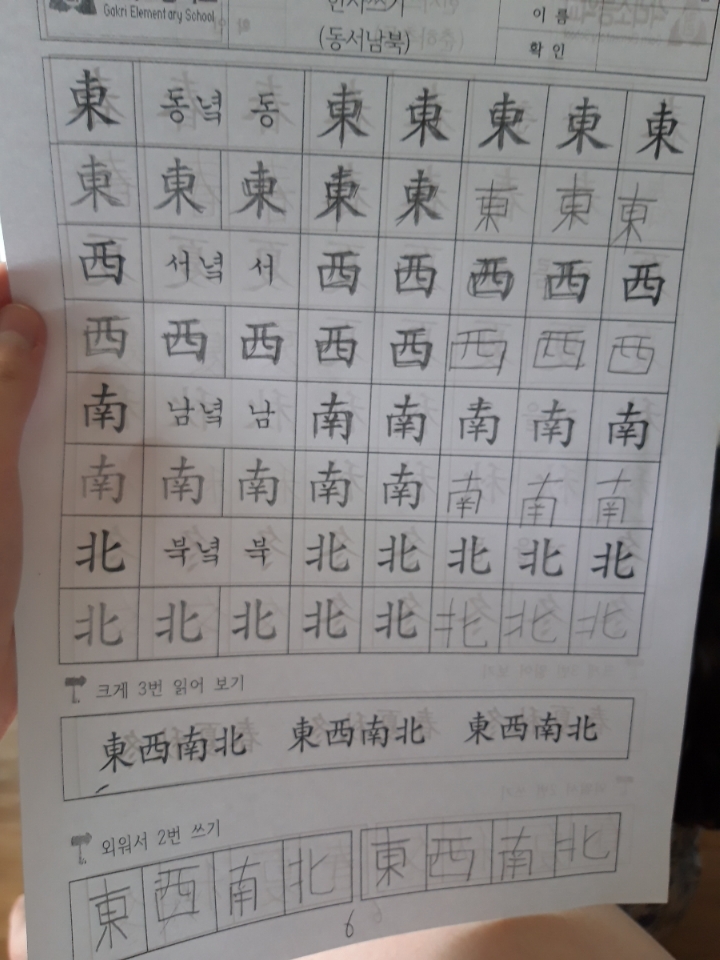 Gakri Elementary School
한자쓰기
(동서남북)
이 름
확 인
東 동녘 동 東 東 東 東 東
東 東 東 東 東 東 東 東
西 서녘 서 西 西 西 西 西
西 西 西 西 西 西 西 西
南 남녘 남 南 南 南 南 南
南 南 南 南 南 南 南 南
北 북녘 북 北 北 北 北 北
北 北 北 北 北 北 北 北
크게 3번 읽어 보기
東西南北 東西南北 東西南北
외워서 2번 쓰기
東 西 南 北 東 西 南 北
6